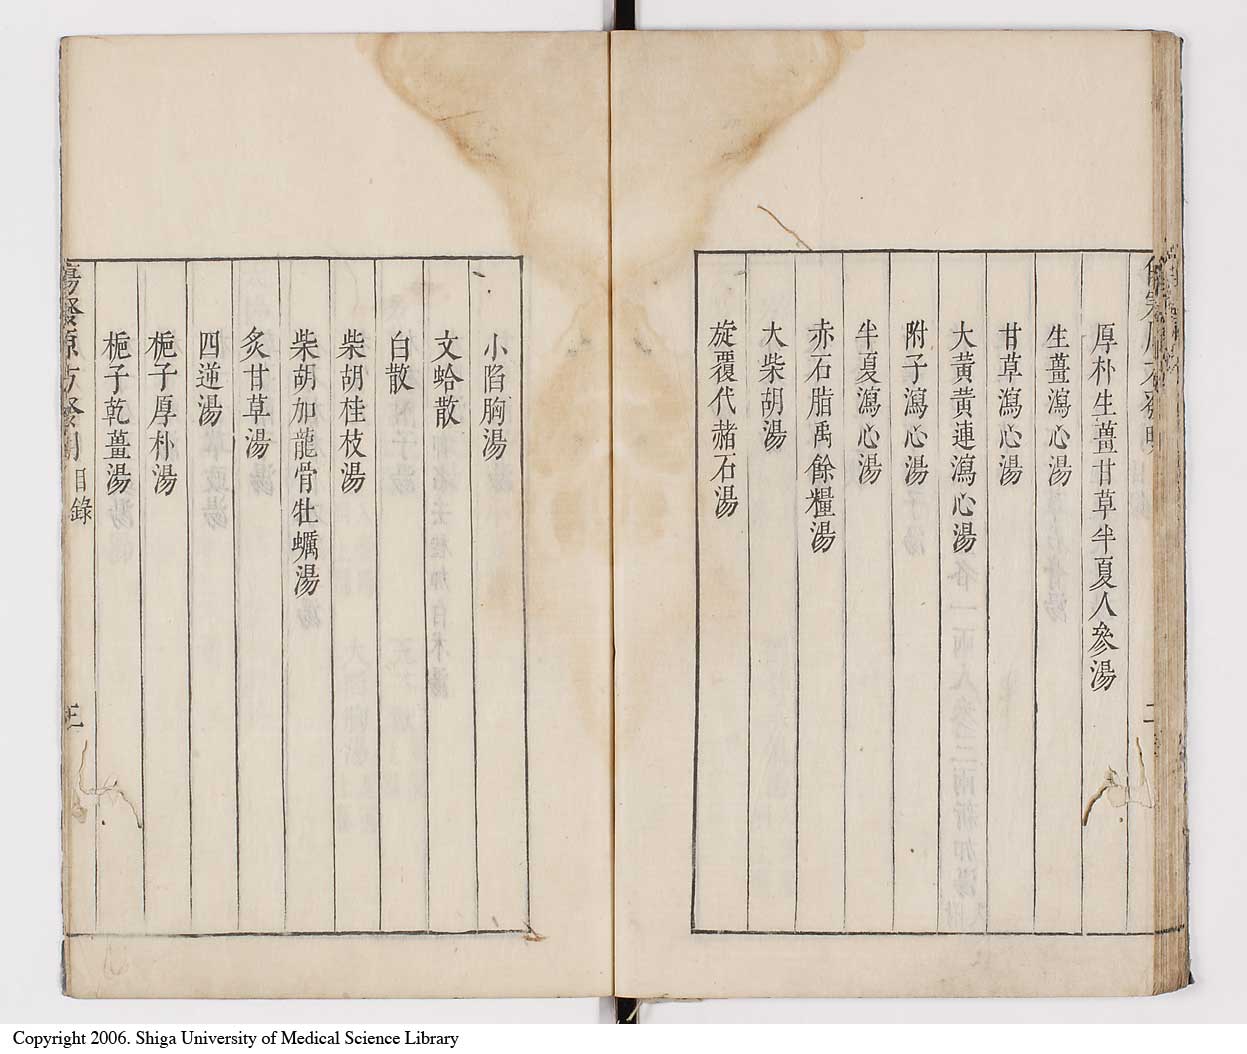 厚朴生薑甘草半夏人參湯
生薑瀉心湯
甘草瀉心湯
大黃黃連瀉心湯
附子瀉心湯
半夏瀉心湯
赤石脂禹餘糧湯
大柴胡湯
旋覆代赭石湯
小陷胸湯
文蛤散
白散
柴胡桂枝湯
柴胡加龍骨牡蠣湯
炙甘草湯
四逆湯
梔子厚朴湯
梔子乾薑湯
目錄
三
Copyright 2006. Shiga University of Medical Science Library